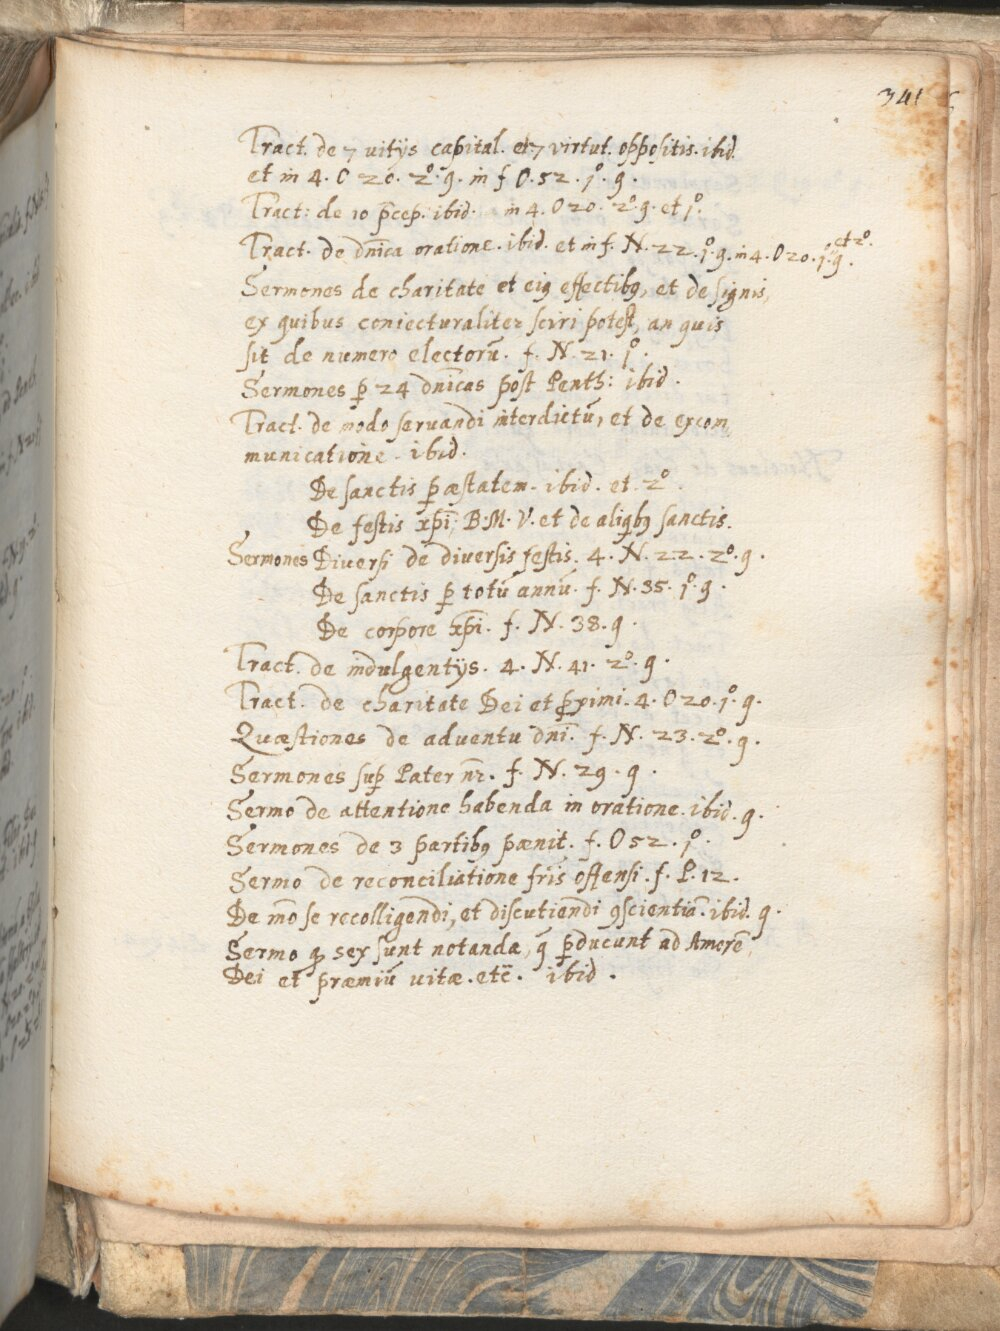 341
Tract. de 7 vitijs capital. et 7 virtut. oppositis. ibid.
et in 4. O 20. 2º. g. in f O. 52. jº. g.
Tract: de 10 p̄cep. ibid. in 4. O 20. 2º. g. et jº.
Tract. de dn̄ica oratione. ibid. et in f. N. 22. jº. g. in 4. O 20. jº. et 2º. g.
Sermones de charitate et eiꝰ effectibꝰ, et de signis,
ex quibus coniecturaliter sciri potest, an quis
sit de numero electorū. f. N. 21. jº.
Sermones p̱ 24 dn̄icas post Penth: ibid.
Tract. de modo seruandi interdictū, et de excom
municatione. ibid.
De sanctis p̱ æstatem. ibid. et 2º.
De festis xp̄i, B. M. V. et de aliqbꝰ sanctis.
Sermones Diversi de diversis festis. 4. N. 22. 2º. g.
De sanctis p̱ totū annū. f. N. 35. jº. g.
De corpore xp̄i. f. N. 38. g.
Tract. de indulgentijs. 4. N. 41. 2º. g.
Tract. de charitate Dei et ꝓximi. 4. O 20. jº. g.
Quæstiones de adventu dn̄i. f. N. 23. 2º. g.
Sermones sup̱ Pater nr̄. f. N. 29. g.
Sermo de attentione habenda in oratione. ibid. g.
Sermones de 3 partibꝰ pænit. f. O 52. jº.
Sermo de reconciliatione fr̄is offensi. f. P. 12.
De mō se recolligendi, et discutiendi ꝯscientiā. ibid. g.
Sermo ꝙ sex sunt notanda, q̄ p̱ducunt ad Amorē
Dei et præmiū vitæ. etē. ibid.